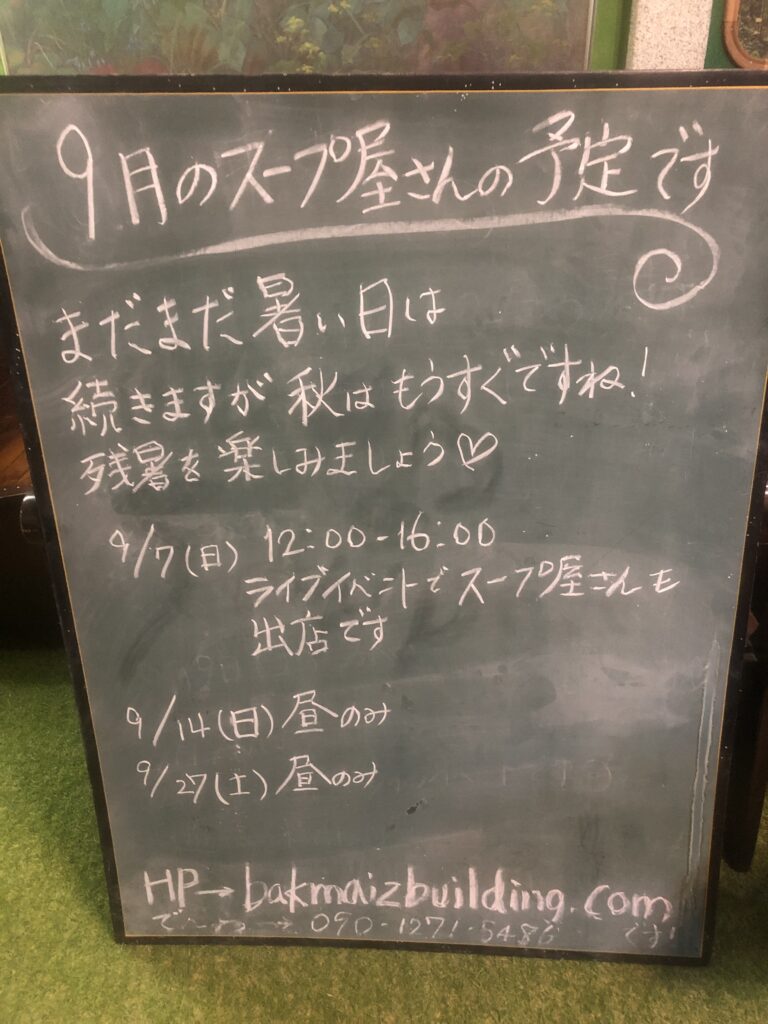 9月のスープ屋さんの予定です
まだまだ暑い日は
続きますが秋はもうすぐですね!
残暑を楽しみましょう♡
9/7(日) 12:00-16:00
ライブイベントでスープ屋さんも
出店です
9/14(日)昼のみ
9/27(土)昼のみ
HP→bakmaizbuilding.com
でんわ→090-1271-5486 です!